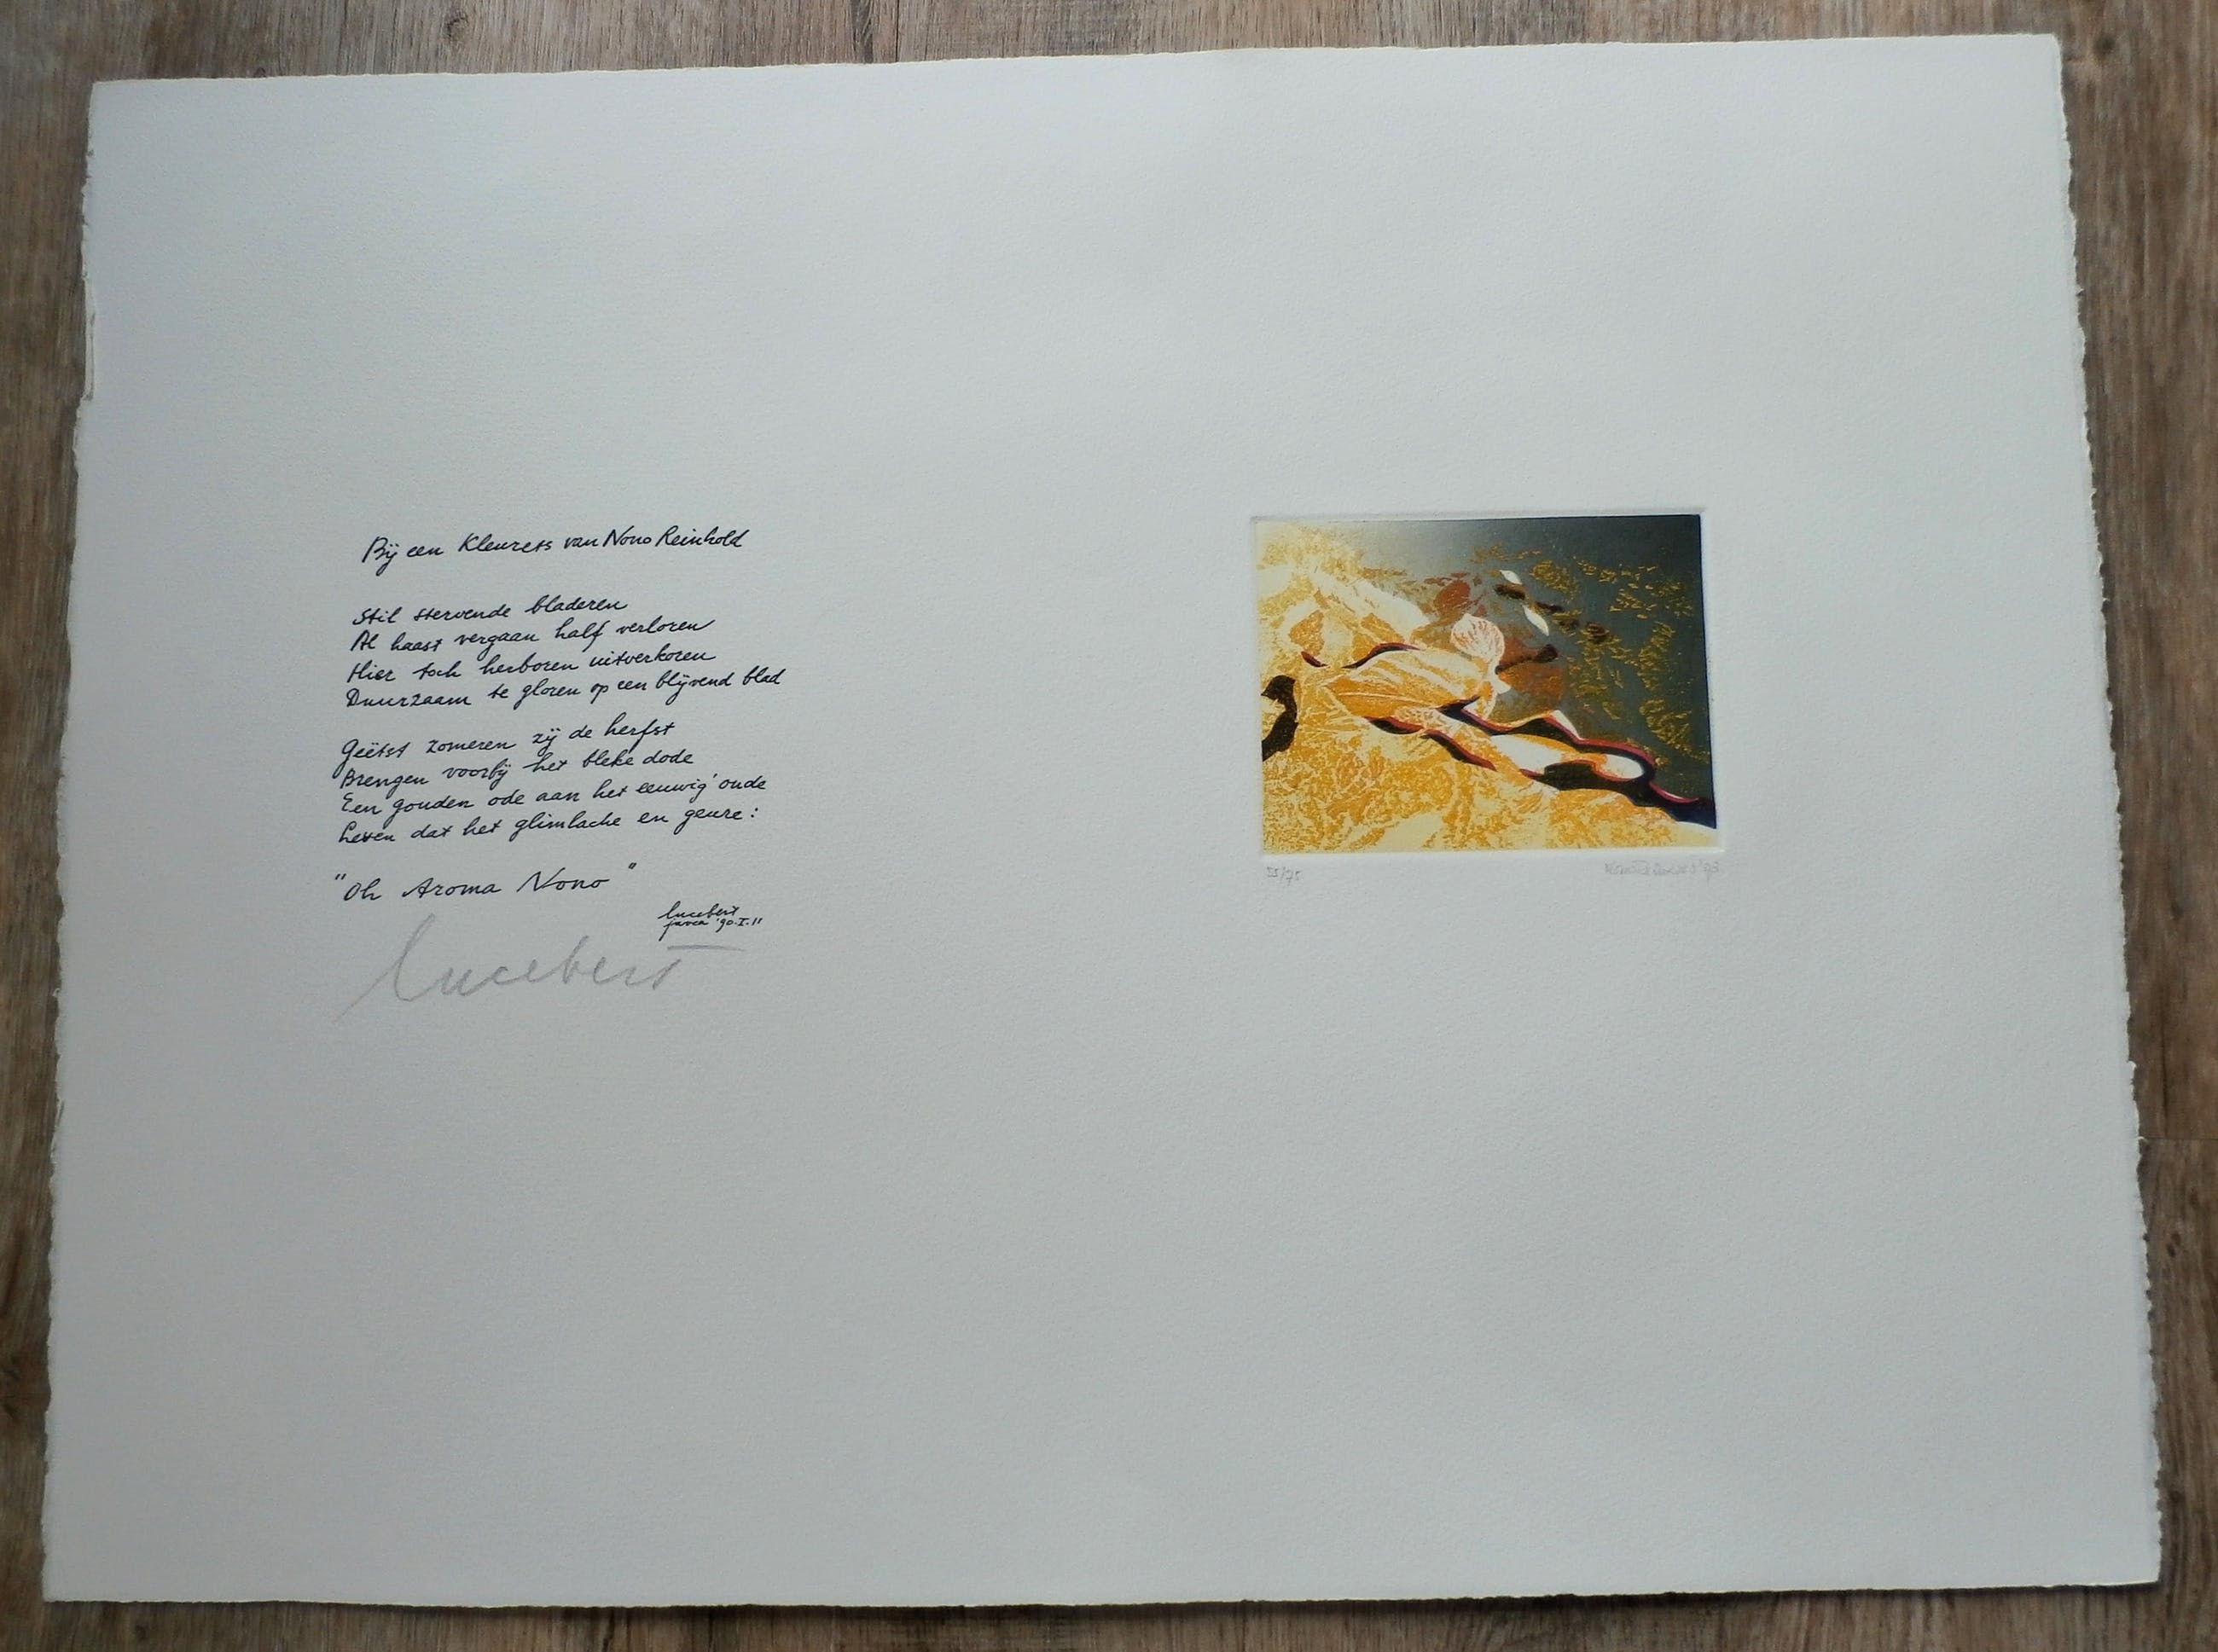 Bij een Kleurets van Nono Reinhold
Stil stervende bladeren
Al haast vergaan half verloren
Hier toch herboren uitverkoren
Duurzaam te gloren op een blijvend blad
Geëtst zomeren zij de herfst
Brengen voorbij het bleke dode
Een gouden ode aan het eeuwig oude
Leven dat het glimlache en geure:
"Oh Aroma Nono"
lucebert
javea '90.I.11
Lucebert
/75